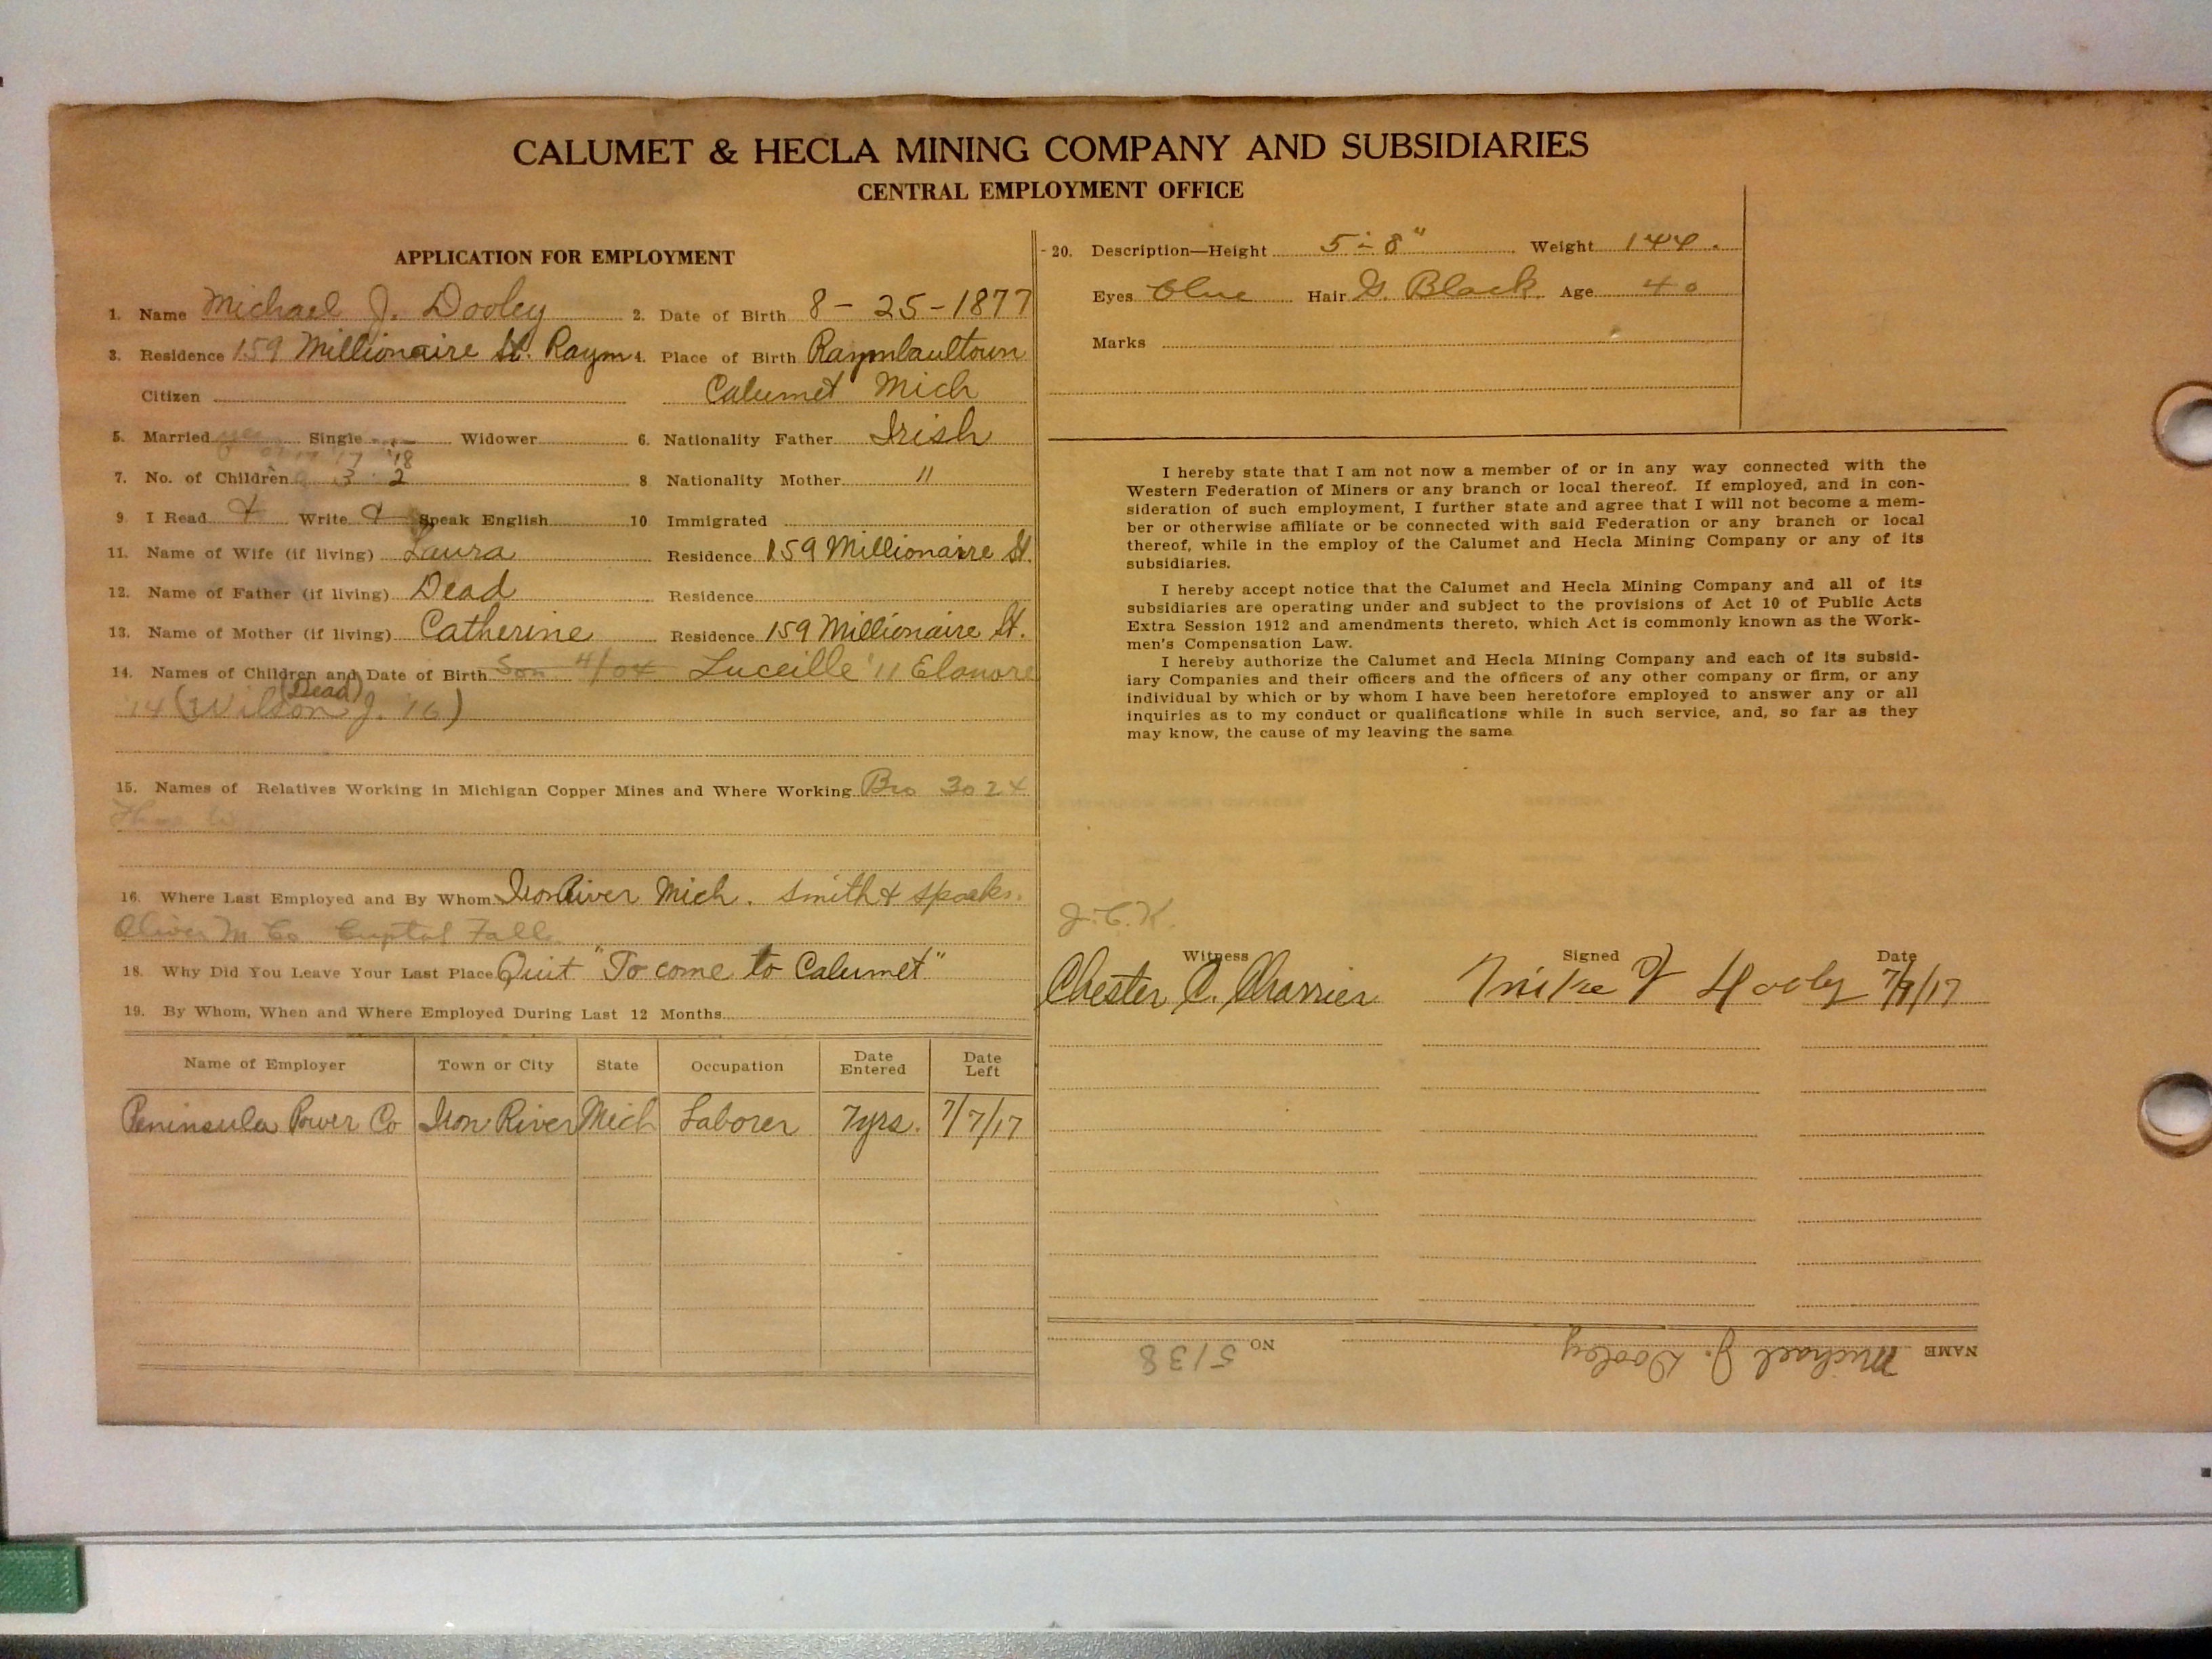 CALUMET & HECLA MINING COMPANY AND SUBSIDIARIES
CENTRAL EMPLOYMENT OFFICE
APPLICATION FOR EMPLOYMENT
1. Name Michael J. Dooley 2. Date of Birth 8-25-1877
3. Residence 159 Millionaire St. Raym 4. Place of Birth Raymbaultown
Citizen Calumet Mich
5. Married yes Single Widower 6. Nationality Father Irish
'17 '18
7. No. of Children 3 2 8 Nationality Mother 11
9. I Read Write Speak English 10 Immigrated
11. Name of Wife (if living) Laura Residence 159 Millionaire St.
12. Name of Father (if living) Dead Residence
13. Name of Mother (if living) Catherine Residence 159 Millionaire St.
14. Names of Children and Date of Birth Son 4/04 Luceille '11 Elanore
(Dead)
'14 (Wilson J. '16)
15. Names of Relatives Working in Michigan Copper Mines and Where Working Bro 3024
16. Where Last Employed and By Whom Iron River Mich. Smith &
Oliver M Co. Crystal Falls
18. Why Did You Leave Your Last Place Quit "To come to Calumet"
19. By Whom, When and Where Employed During Last 12 Months
Name of Employer Town or City State Occupation Date Entered Date Left
Peninsula Power Co Iron River Mich Laborer 7yrs. 7/7/17
20. Description—Height 5'-8" Weight 144.
Eyes Blue Hair G. Black Age 40
Marks
I hereby state that I am not now a member of or in any way connected with the
Western Federation of Miners or any branch or local thereof. If employed, and in con-
sideration of such employment, I further state and agree that I will not become a mem-
ber or otherwise affiliate or be connected with said Federation or any branch or local
thereof, while in the employ of the Calumet and Hecla Mining Company or any of its
subsidiaries.
I hereby accept notice that the Calumet and Hecla Mining Company and all of its
subsidiaries are operating under and subject to the provisions of Act 10 of Public Acts
Extra Session 1912 and amendments thereto, which Act is commonly known as the Work-
men's Compensation Law.
I hereby authorize the Calumet and Hecla Mining Company and each of its subsid-
iary Companies and their officers and the officers of any other company or firm, or any
individual by which or by whom I have been heretofore employed to answer any or all
inquiries as to my conduct or qualifications while in such service, and, so far as they
may know, the cause of my leaving the same
J.C.K.
Witness Signed Date
Chester C. Charrier Mike J Dooley 7/9/17
NAME Michael J. Dooley NO 5138